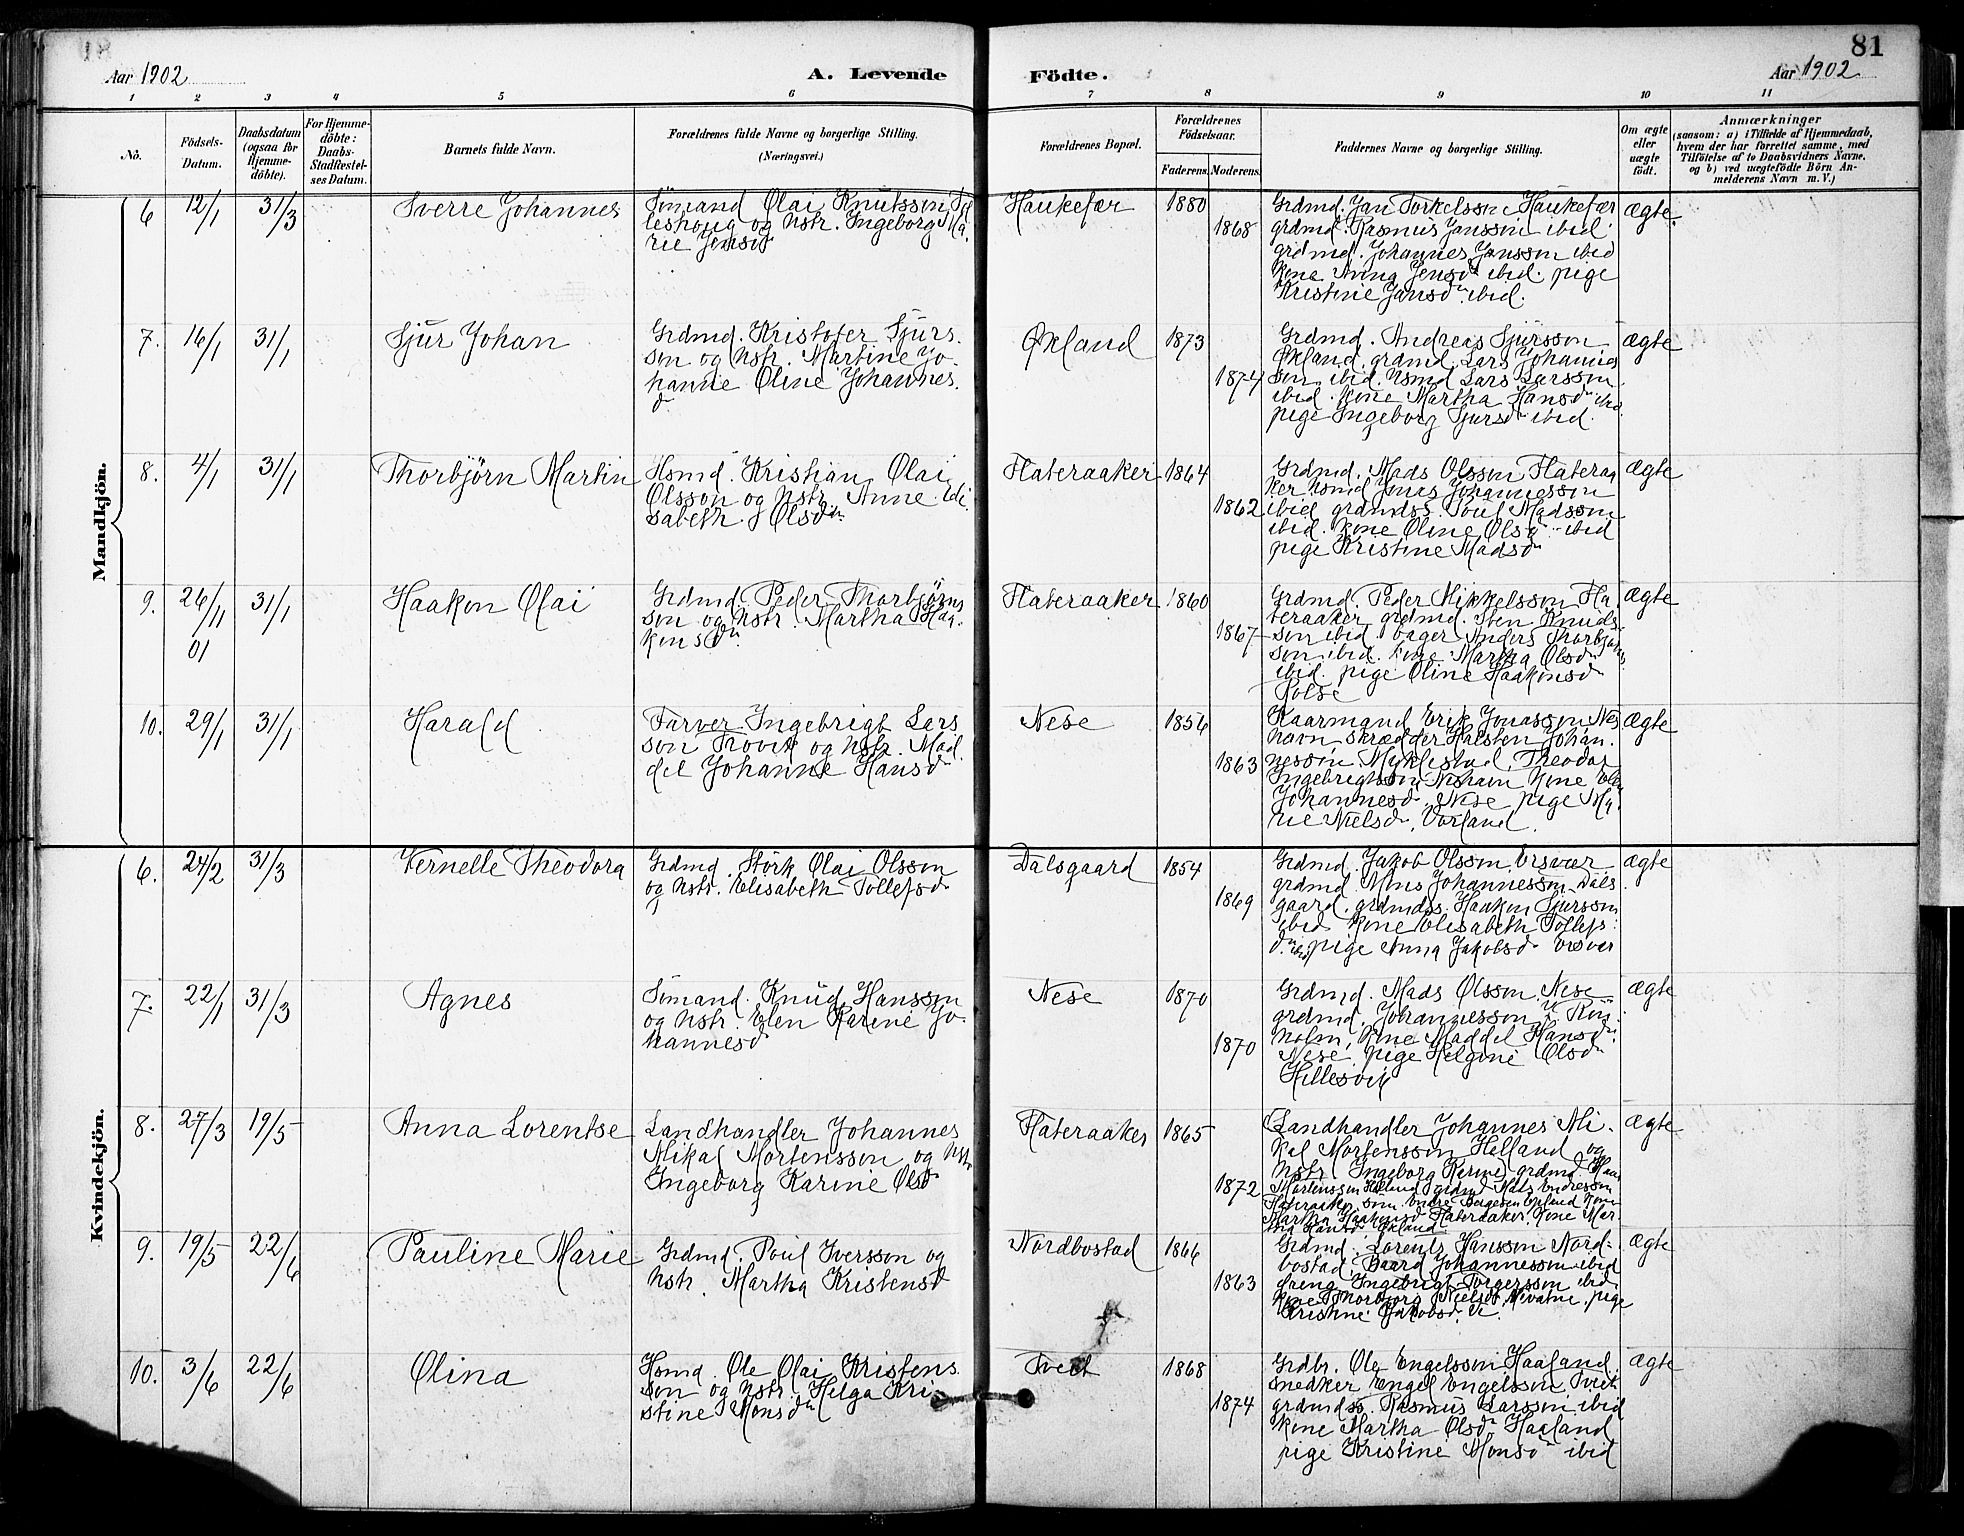 81
Aar 1902
A. Levende
Födte.
Aar 1902
1 2 3 4 5 6 7 8 9 10 11
No.
Födsels-
Datum.
Daabsdatum
(ogsaa for
Hjemme-
döbte).
For Hjemme-
döbte:
Daabs-
Stadfæstel-
ses Datum.
Barnets fulde Navn.
Forældrenes fulde Navne og borgerlige Stilling.
(Næringsvei.)
Forældrenes Bopæl.
Forældrenes
Födselsaar.
Faderens.
Moderens.
Faddernes Navne og borgerlige Stilling.
Om ægte
eller
uægte
födt.
Anmærkninger
(saasom: a) i Tilfælde af Hjemmedaab,
hvem der har forrettet samme, med
Tilföielse af to Daabsvidners Navne,
og b) ved uægtefödte Börn An-
melderens Navn m. V.)
Mandkjön.
6 12/1 31/3 Sverre Johannes
Sömand Olai Knutsson
og Kstr. Ingeborg Ma-
rie Jensd
Haukefær 1880
1868
Grdmd. Jan Torkelsson Haukefær
grdmd. Rasmus Jansson ibid.
grdmd. Johannes Jansson ibid
kone Anna Jensdn ibid. pige
Kristine Jansdn ibid.
ægte
7. 16/1 31/1 Sjur Johan
Grdmd. Kristofer Sjurs-
son og Kstr. Martine Jo-
hanne Oline Johannes-
d
Økland 1873
1874
Grdmd. Andreas Sjursson
Økland. grdmd. Lars Johannes
son ibid. Hsmd Lars Larsson
ibid. Kone Martha Hansdn ibid.
pige Ingeborg Sjursdn ibid.
ægte
8. 4/1 31/1 Thorbjörn Martin
Hsmd. Kristian Olai
Olsson og Kstr. Anne Eli-
sabeth Olsdn.
Flateraaker 1864
1862
Grdmd. Mads Olsson Flateraa
ker Hsmd Jonas Johannesson
ibid grdmdss. Poul Madsson
ibid. Kone Oline Olsdn ibid
pige Kristine Madsdn
ægte
9. 26/11 01 31/1 Haakon Olai
Grdmd. Peder Thorbjørns
son og Kstr. Martha Haa-
konsdn.
Flateraaker 1860
1867
Grdmd. Peder Mikkelsson Fla-
teraaker grdmd. Sten Knuds-
son ibid. bager Anders Thorbjørns
son ibid. kone Martha Olsdn
ibid. pige Oline Haakonsdn
Polse
ægte
10. 29/1 31/1 Harald
Farver Ingebrigt Lars
son Trovik og Kstr. Mad-
del Johanne Hansd
Nese 1856
1863
Kaarmand Erik Jonasson Nes
havn, skrædder Halsten Johan-
nesson Myklestad, Theodor
Ingebrigtsson Neshavn Kone Elen
Johannesdn. Nese pige Ma-
rie Nielsdn, Vorland.
ægte
Kvindekjön.
6. 24/2 31/3 Vernelle Theodora
Grdmd. Störk Olai Olsson
og Kstr. Elisabeth Tollefsd
Dalsgaard 1854
1869
Grdmd. Jakob Olsson Ersvær
grdmd. Mons Johannesson Dals
gaard, grdmdss. Haakon Sjursson
ibid Kone Elisabeth Tollefs-
dn ibid pige Anna Jakobsdn Ersvær
ægte
7. 22/1 31/3 Agnes
Sömand. Knud Hansson
og Kstr. Elen Karine Jo-
hannesd
Nese 1870
1870
Grdmd. Mads Olsson, Nese
grdmd. Johannesson
holm, Kone Maddel Hansdn
Nese, pige Helgine Olsdn
Hillesvik
ægte
8. 27/3 19/5 Anna Lorentse
Landhandler Johannes
Mikal Mortensson og Kstr
Ingeborg Karine Olsd
Flateraaker 1865
1872
Landhandler Johannes Mi-
kal Mortensson Helland og
Kstr. Ingeborg Karine grdmd. Haa
Mortensson Helland grdmd Nils Endresson
Flateraaker, sön Endre Økland Kone
Martha Haakonsdn Flateraaker, Kone Mar-
tha Hansdn Økland
ægte
9. 19/5 22/6 Pauline Marie
Grdmd. Poul Iversson og
Kstr. Martha Kristensd
Nordbostad 1866
1863
Grdmd. Lorents Hansson Nord-
bostad, Baard Johannesson ibid
dreng Ingebrigt Torgersson ibid.
Kone Thorbjörg Nielsdn, pige
Kristine Jakobsd.
ægte
10. 3/6 22/6 Olina
Hsmd. Ole Olai Kristens
son og Kstr. Helga Kri
stine Monsdn
Tveit 1868
1874
Grdbr. Ole Engelsson Haaland.
snedker Engel Engelsson, Tveit
grdmdss. Rasmus Larsson ibid
Kone Martha Olsdn Haaland
pige Kristine Monsdn ibid
ægte